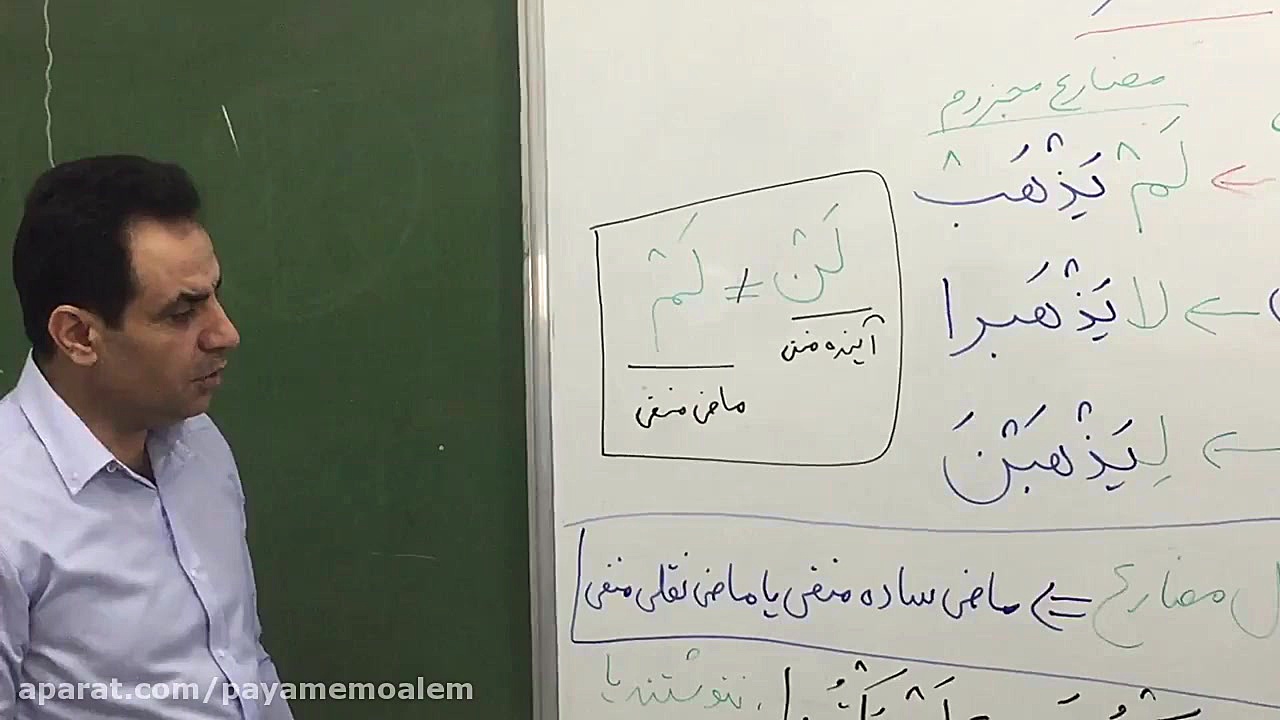 مضارع مجزوم
لَمْ يَذْهَبْ
لَنْ ≠ لَمْ
آینده منفی
ماضی منفی
لا يَذْهَبوا
لِيَذْهَبْنَ
مضارع => ماضی ساده منفی یا ماضی نقلی منفی
ننوشتند یا
aparat.com/payamemoalem